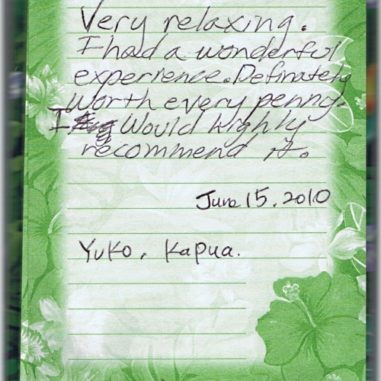 Very relaxing.
I had a wonderful
experience. Definately
worth every penny.
I Would highly
recommend it.
June 15, 2010
Yuko, Kapua.